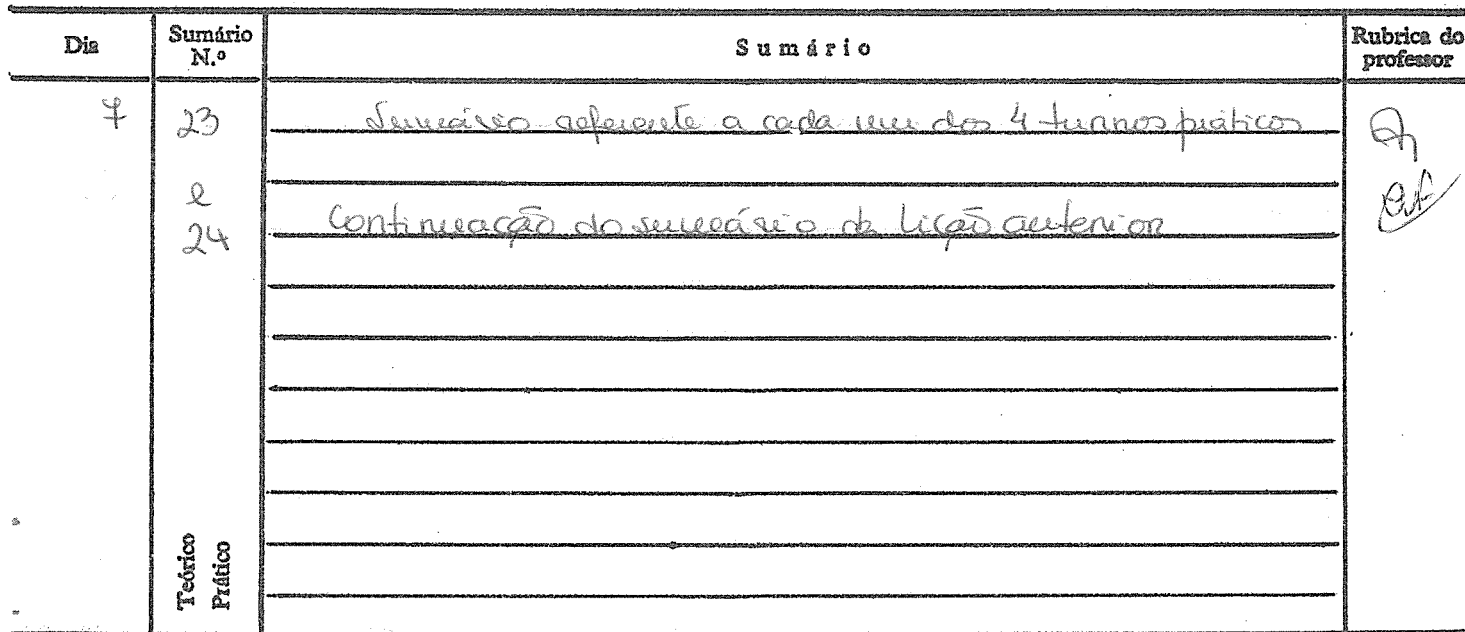 Dia Sumário N.º Sumário Rubrica do professor
7 23 Sumário referente a cada um dos 4 turnos práticos
e
24 Continuação do sumário da lição anterior
Teórico
Prático